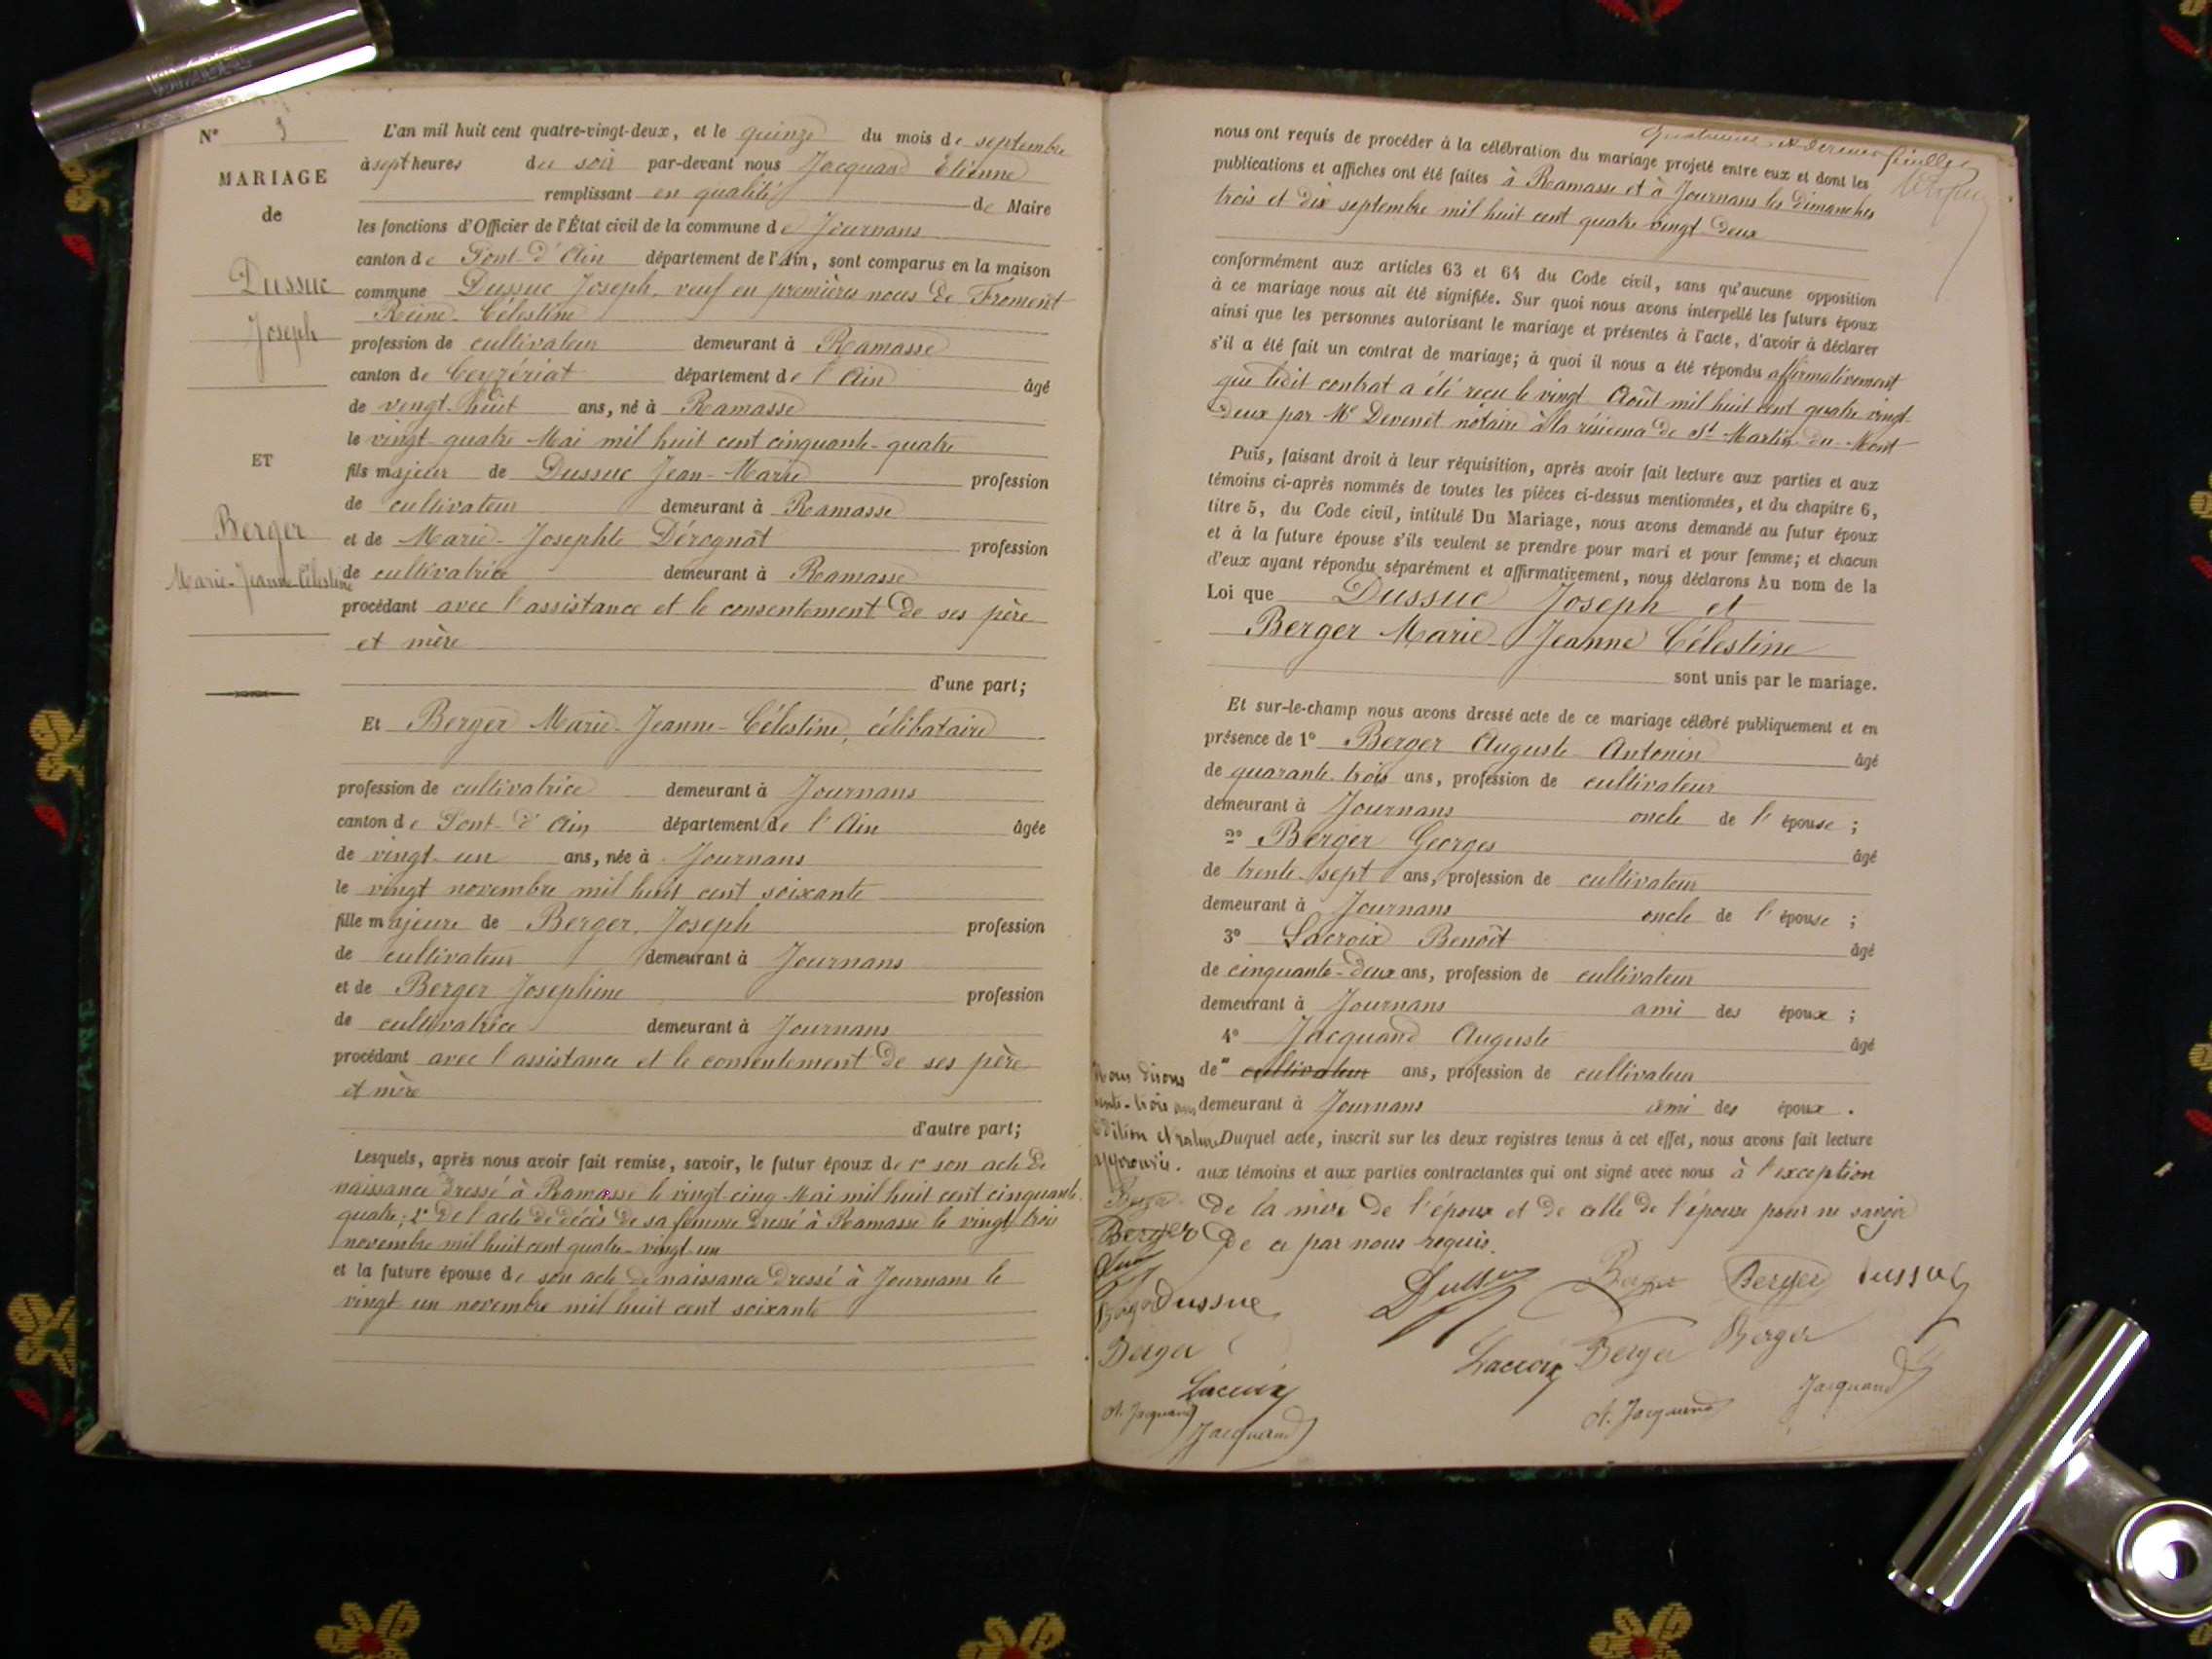 N° 3
MARIAGE
de
Dussuc
Joseph
ET
Berger
Marie-Jeanne-Célestine
L'an mil huit cent quatre-vingt-deux, et le quinze du mois de septembre
à sept heures du soir par-devant nous Jacquand Etienne
remplissant en qualité de Maire
les fonctions d'Officier de l'État civil de la commune de Journans
canton de Pont-d'Ain département de l'Ain, sont comparus en la maison
commune Dussuc Joseph, veuf en premières noces de Froment
Reine-Célestine
profession de cultivateur demeurant à Ramasse
canton de Ceyzériat département de l'Ain âgé
de vingt-huit ans, né à Ramasse
le vingt-quatre Mai mil huit cent cinquante-quatre
fils majeur de Dussuc Jean-Marie profession
de cultivateur demeurant à Ramasse
et de Marie-Josephte Dérognat profession
de cultivatrice demeurant à Ramasse
procédant avec l'assistance et le consentement de ses père
et mère
d'une part;
Et Berger Marie-Jeanne-Célestine, célibataire
profession de cultivatrice demeurant à Journans
canton de Pont-d'Ain département de l'Ain âgée
de vingt-un ans, née à Journans
le vingt novembre mil huit cent soixante
fille majeure de Berger Joseph profession
de cultivateur demeurant à Journans
et de Berger Josephine profession
de cultivatrice demeurant à Journans
procédant avec l'assistance et le consentement de ses père
et mère
d'autre part;
Lesquels, après nous avoir fait remise, savoir, le futur époux de 1° son acte de
naissance dressé à Ramasse le vingt cinq Mai mil huit cent cinquante
quatre; 2° de l'acte de décès de sa femme dressé à Ramasse le vingt trois
novembre mil huit cent quatre-vingt-un
et la future épouse de son acte de naissance dressé à Journans le
vingt un novembre mil huit cent soixante
Quatrième et dernier feuillet
nous ont requis de procéder à la célébration du mariage projeté entre eux et dont les
publications et affiches ont été faites à Ramasse et à Journans les dimanches
trois et dix septembre mil huit cent quatre vingt deux
conformément aux articles 63 et 64 du Code civil, sans qu'aucune opposition
à ce mariage nous ait été signifiée. Sur quoi nous avons interpellé les futurs époux
ainsi que les personnes autorisant le mariage et présentes à l'acte, d'avoir à déclarer
s'il a été fait un contrat de mariage; à quoi il nous a été répondu affirmativement
que ledit contrat a été reçu le vingt Août mil huit cent quatre vingt
deux par Me Devenet notaire à la de St Martin-du-Mont
Puis, faisant droit à leur réquisition, après avoir fait lecture aux parties et aux
témoins ci-après nommés de toutes les pièces ci-dessus mentionnées, et du chapitre 6,
titre 5, du Code civil, intitulé Du Mariage, nous avons demandé au futur époux
et à la future épouse s'ils veulent se prendre pour mari et pour femme; et chacun
d'eux ayant répondu séparément et affirmativement, nous déclarons Au nom de la
Loi que Dussuc Joseph et
Berger Marie-Jeanne Célestine
sont unis par le mariage.
Et sur-le-champ nous avons dressé acte de ce mariage célébré publiquement et en
présence de 1° Berger Auguste Antonin âgé
de quarante-trois ans, profession de cultivateur
demeurant à Journans oncle de l'épouse ;
2° Berger Georges âgé
de trente-sept ans, profession de cultivateur
demeurant à Journans oncle de l'épouse ;
3° Lacroix Benoît âgé
de cinquante-deux ans, profession de cultivateur
demeurant à Journans ami des époux ;
4° Jacquand Auguste âgé
de cultivateur ans, profession de cultivateur
demeurant à Journans ami des époux .
Duquel acte, inscrit sur les deux registres tenus à cet effet, nous avons fait lecture
aux témoins et aux parties contractantes qui ont signé avec nous à l'exception
de la mère de l'époux et de celle de l'épouse pour ne savoir
de ce par nous requis.
Nous disons
trente-trois ans
addition et rature
approuvée.
Berger
Berger
Dussuc
Berger
Lacroix
A. Jacquand
Jacquand
Berger
Berger
Dussuc
Lacroix
Berger
Berger
A. Jacquand
Jacquand